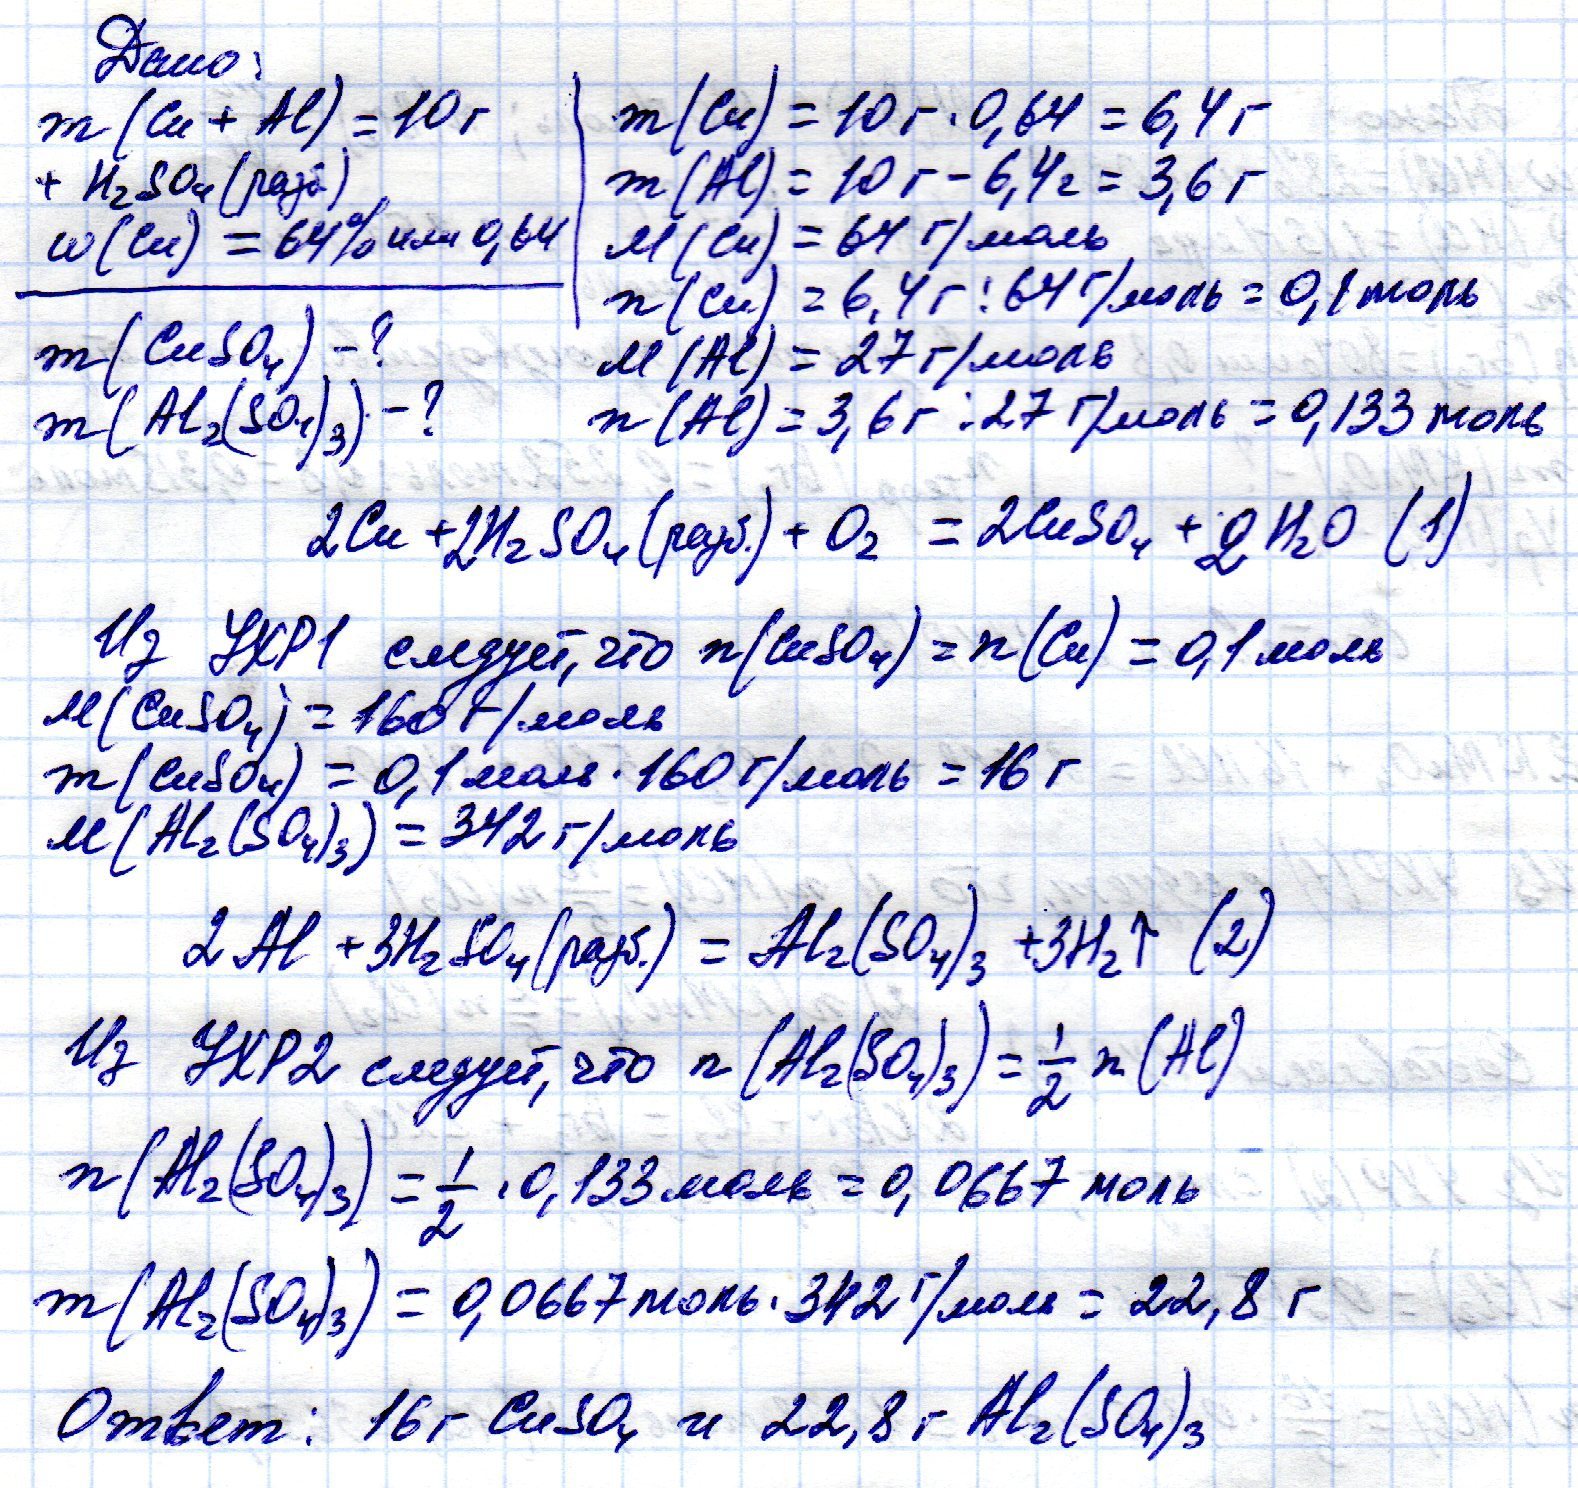 Дано:
m(Cu + Al) = 10 г
+ H₂SO₄(разб)
w(Cu) = 64% или 0,64
m(CuSO₄) - ?
m(Al₂(SO₄)₃) - ?
m(Cu) = 10 г · 0,64 = 6,4 г
m(Al) = 10 г - 6,4 г = 3,6 г
M(Cu) = 64 г/моль
n(Cu) = 6,4 г : 64 г/моль = 0,1 моль
M(Al) = 27 г/моль
n(Al) = 3,6 г : 27 г/моль = 0,133 моль
2Cu + 2H₂SO₄(разб.) + O₂ = 2CuSO₄ + 2H₂O (1)
Из УХР1 следует, что n(CuSO₄) = n(Cu) = 0,1 моль
M(CuSO₄) = 160 г/моль
m(CuSO₄) = 0,1 моль · 160 г/моль = 16 г
M(Al₂(SO₄)₃) = 342 г/моль
2Al + 3H₂SO₄(разб.) = Al₂(SO₄)₃ + 3H₂↑ (2)
Из УХР2 следует, что n(Al₂(SO₄)₃) = 1/2 n(Al)
n(Al₂(SO₄)₃) = 1/2 · 0,133 моль = 0,0667 моль
m(Al₂(SO₄)₃) = 0,0667 моль · 342 г/моль = 22,8 г
Ответ: 16 г CuSO₄ и 22,8 г Al₂(SO₄)₃